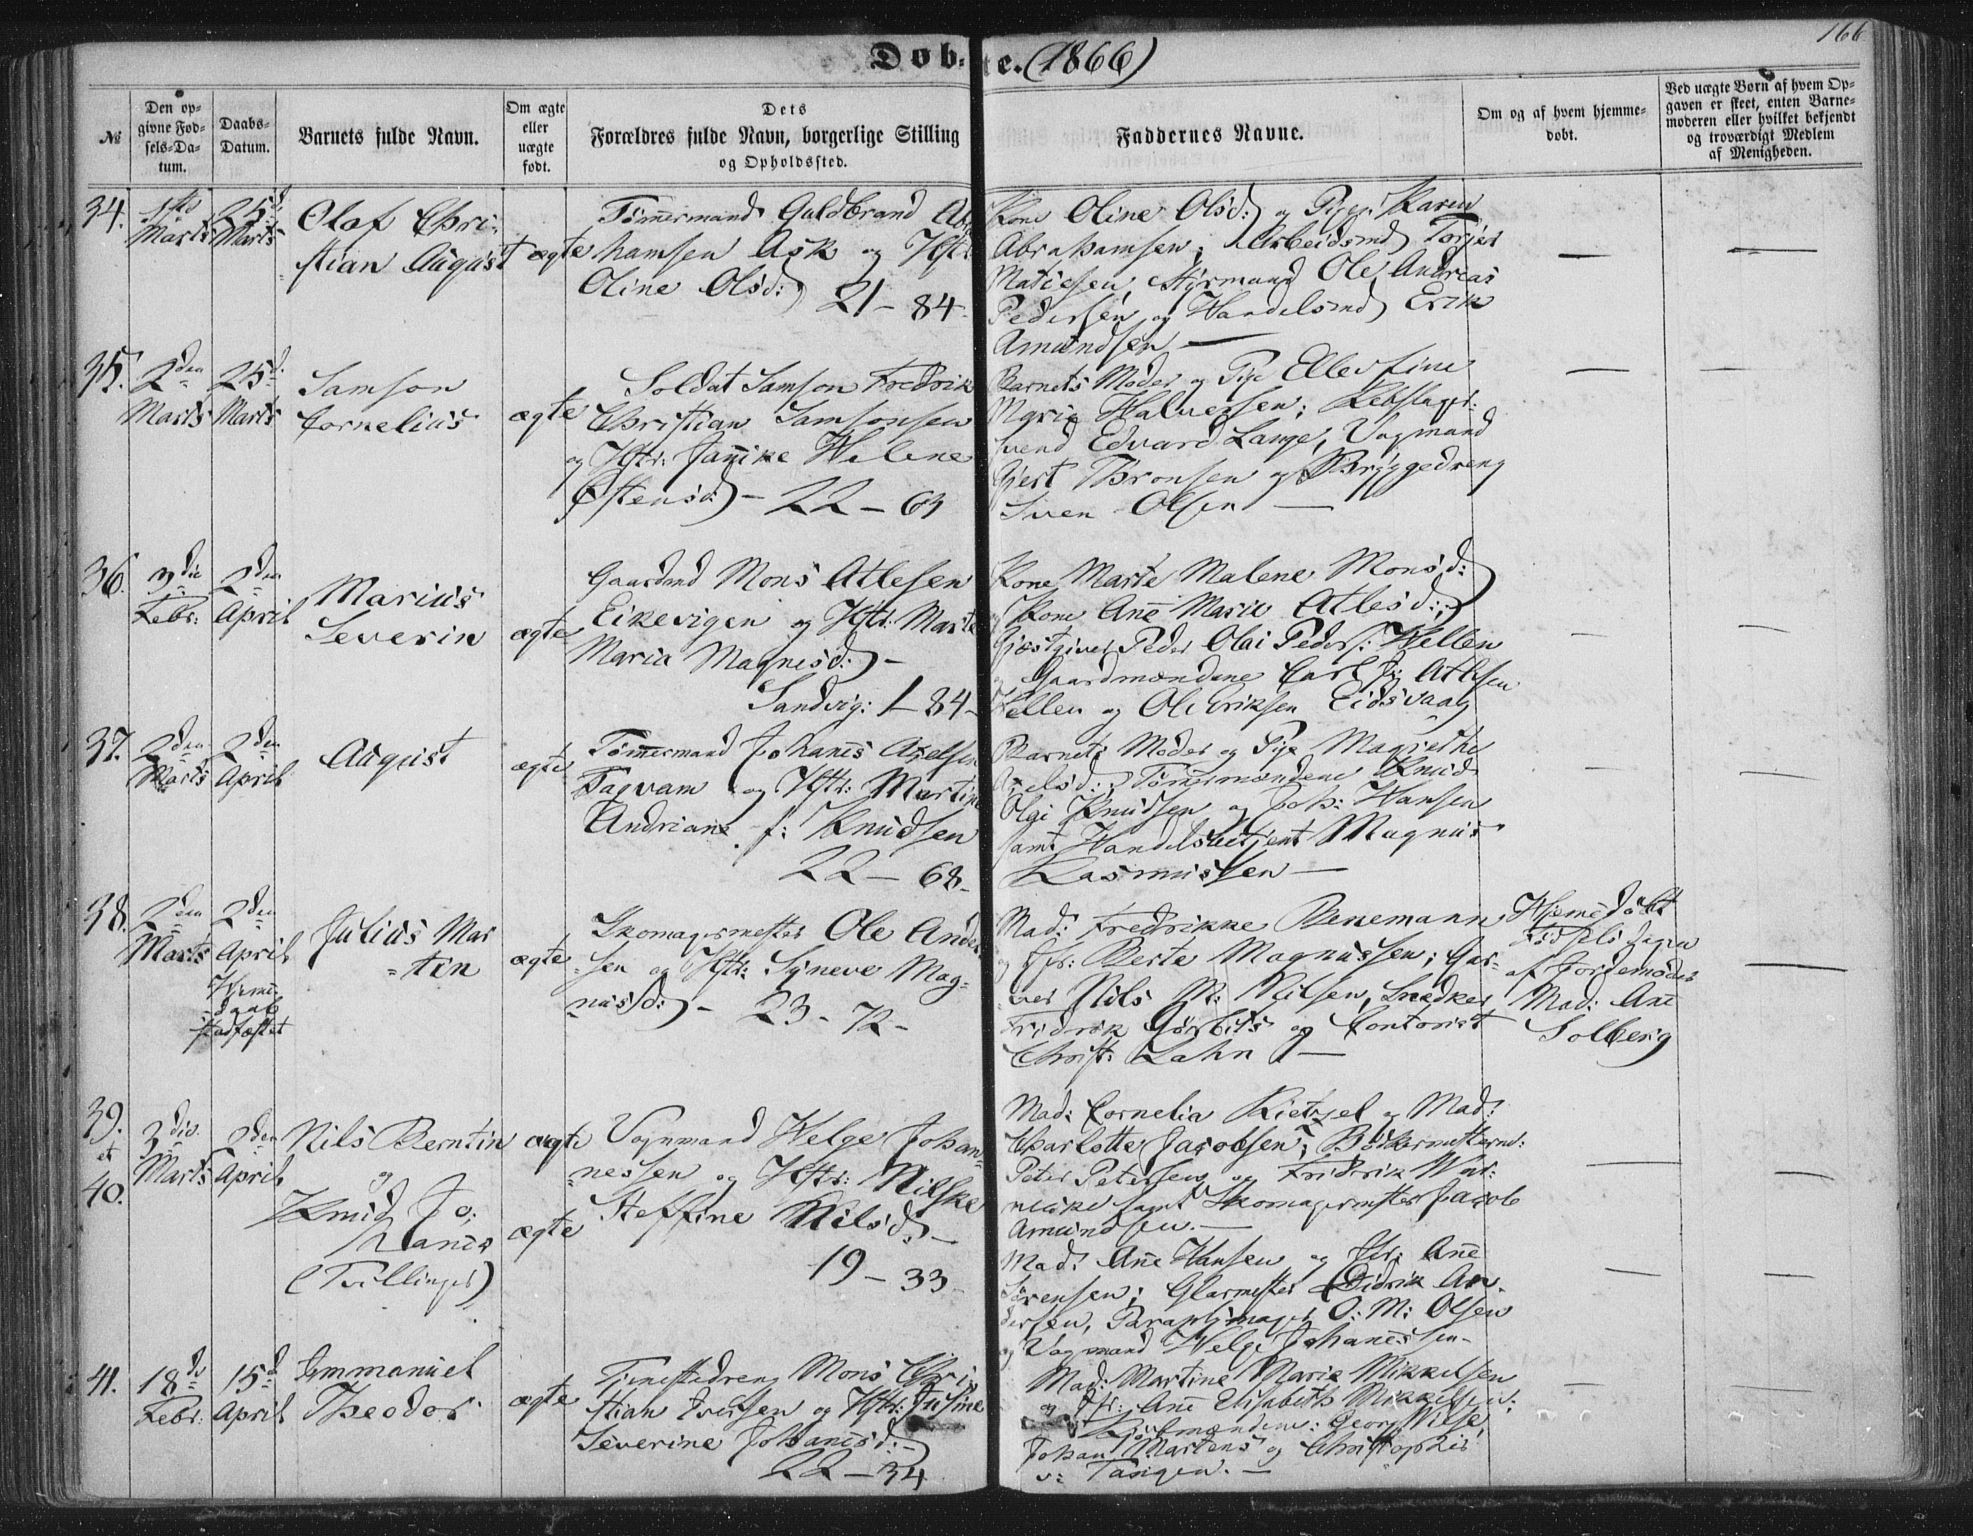 166
Døbte. (1866)
№
Den opgivne Fødsels-Datum.
Daabs-Datum.
Barnets fulde Navn.
Om ægte eller uægte født.
Dets Forældres fulde Navn, borgerlige Stilling og Opholdssted.
Faddernes Navne.
Om og af hvem hjemmedøbt.
Ved uægte Børn af hvem Opgaven er skeet, enten Barnemoderen eller hvilket bekjendt og troværdigt Medlem af Menigheden.
34.
1ste Marts
25d. Marts
Olaf Chri-
stian August
ægte
Tømmermand Guldbrand Abra
hamsen Ask og Hstr.
Oline Olsd:
21 – 84
Kone Oline Olsd: og Pige Karen
Abrahamsen; Arbeidsmd Torjer
Matiesen, Styrmand Ole Andreas
Pedersen og Handelsmd Erik
Amundsen —
35.
2den Marts
25d. Marts
Samson
Cornelius
ægte
Soldat Samson Fredrik
Christian Samsonsen
og Hstr: Janike Helene
Østensd: –
22 – 63
Barnets Moder og Pige Ellestine
Marie Halversen; Rebslager
Svend Edvard Lange, Vognmand
Gjert Thronsen og Bryggedreng
Sven Olsen —
36.
3die Febr:
2den April
Marius
Severin
ægte
Gaardmd Mons Atlesen
Eikevigen og Hstr. Marte
Maria Magnesd: –
Sandvig: 1 – 84 –
Kone Marte Malene Monsd:
og Kone Ane Marie Atlesd:;
Gjæstgiver Peder Olai Peders: Hellen
og Gaardmændene Carl Atlesen
Hellen og Ole Eriksen Eidsvaag
37.
2den Marts
2den April
August
ægte
Tømmermand Johanes Axelsen
Fagvam og Hstr: Martine
Andriane f: Knudsen
22 – 68 –
Barnets Moder og Pige Magrethe
Axelsd:; Tømmermændene Knud
Olai Knudsen og Joh: Hansen
samt Handelsbetjent Magnus
Rasmussen —
38.
2den Marts
2den April
Hjeme-
daab
stadfæstet
Julius Mar
tin
ægte
Skomagermester Ole Ander
sen og Hstr: Syneve Mag-
nusd: –
23 – 72 –
Mad: Fredrikke Benemann
og Jfr: Berte Magnussen; Gar-
ver Nils M: Nilsen, Snedker
Fridrik Gørbits og Contorist
Christ: Lahn —
Hjemedøbt
Fødselsdagen
af Jordemoder
Mad: Ane
Solberg
39.
et
40.
3die Marts
2den April
Nils Berntin
og
Knud Jo-
hanes
(Tvillinger)
ægte
ægte
Vognmand Helge Johan-
nessen og Hstr: Nilske
Steffine Nilsd. –
19 – 33
Mad: Cornelia Rietzel og Mad:
Charlotte Jacobsen; Bødkermestern:
Peter Petersen og Fridrik War-
necke samt Skomagermester Jacob
Amundsen. —
Mad: Ane Hansen og Jfr: Ane
Sørensen; Glarmester Didrik An-
dersen, Paraplymager O: M: Olsen
og Vognmand Helge Johanessen –
41.
18de Febr:
15d April
Emmanuel
Theodor
ægte
Tjenestedreng Mons Chri
stian Iversen og Hstr: Justine
Severine Johanesd: –
22 – 34
Mad: Martine Marie Mikkelsen
og Jfr: Ane Elisabeth Mikkelsen;
Kjøbmændene: Georg Wiese,
Johan Martens og Christopher
v: Tangen. —